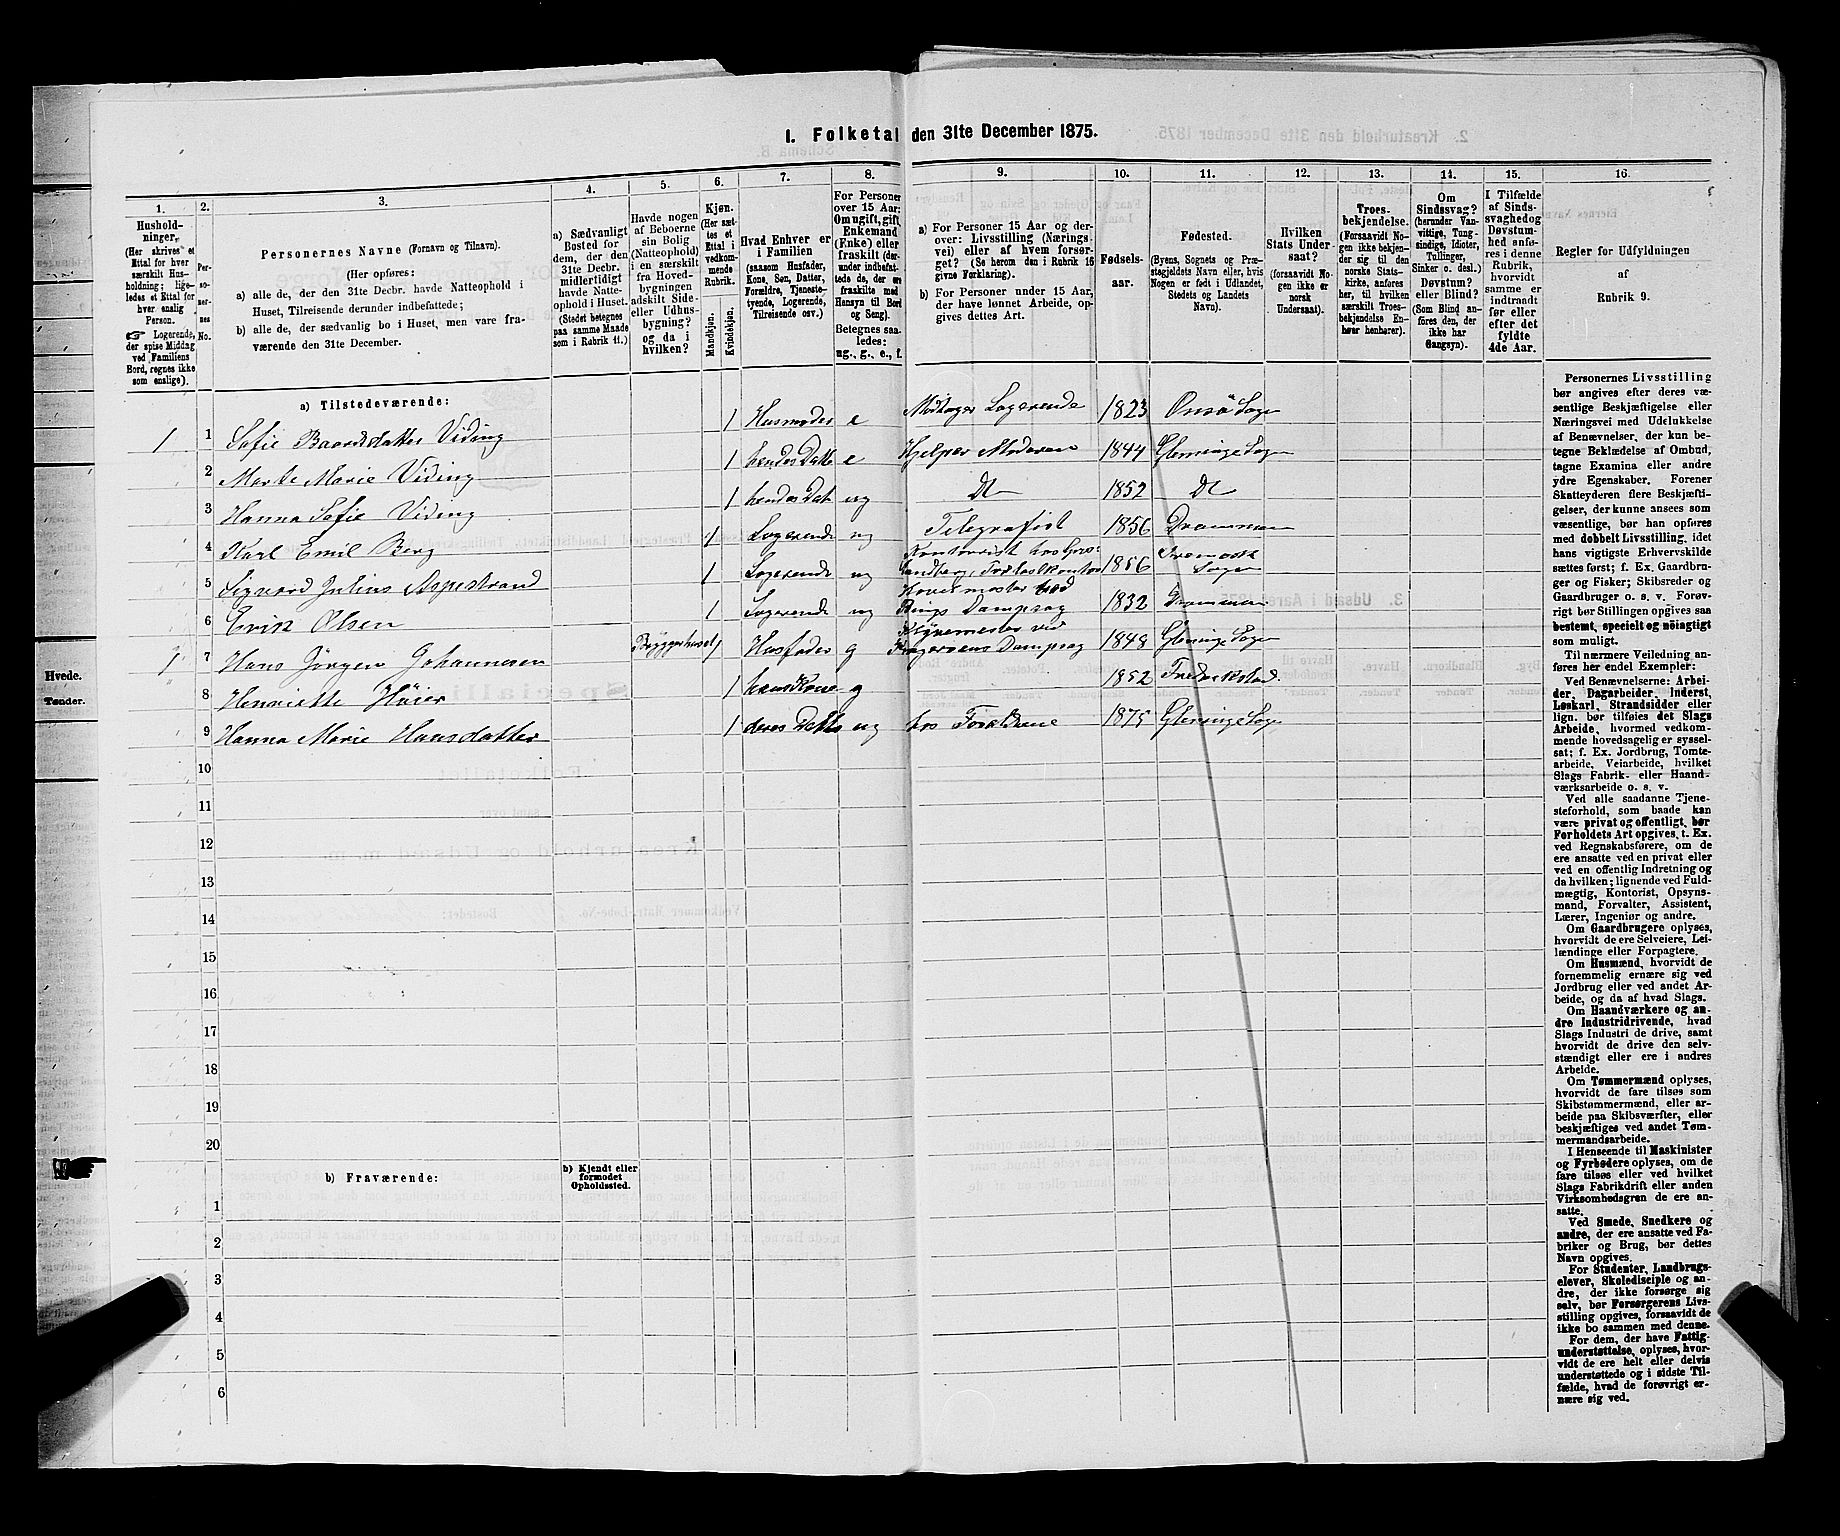 1. Folketal den 31te December 1875.
1.
Hushold-
ninger.
(Her skrives et
Ettal for hver
særskilt Hus-
holdning; lige-
ledes et Ettal for
hver enslig
Person.
Logerende,
der spise Middag
ved Familiens
Bord, regnes ikke
som enslige).
2.
Per-
so-
ner-
nes
No.
3.
Personernes Navne (Fornavn og Tilnavn).
(Her opføres:
a) alle de, der den 31te Decbr. havde Natteophold i
Huset, Tilreisende derunder indbefattede;
b) alle de, der sædvanlig bo i Huset, men vare fra-
værende den 31te December.
4.
a) Sædvanligt
Bosted for
dem, der den
31te Decbr.
midlertidigt
havde Natte-
ophold i Huset.
(Stedet betegnes
paa samme Maade
som i Rubrik 11.)
5.
Havde nogen
af Beboerne
sin Bolig
(Natteophold)
i en særskilt
fra Hoved-
bygningen
adskilt Side-
eller Udhus-
bygning?
og da i
hvilken?
6.
Kjøn.
(Her sæt-
tes et
Ettal i
vedkom-
mende
Rubrik.
Mandkjøn.
Kvindekjøn.
7.
Hvad Enhver er
i Familien
(saasom Husfader,
Kone, Søn, Datter,
Forældre, Tjeneste-
tyende, Logerende,
Tilreisende osv.)
8.
For Personer
over 15 Aar:
Om ugift, gift
Enkemand
(Enke) eller
fraskilt (der-
under indbefat-
tede de, der ere
fraskilte med
Hensyn til Bord
og Seng).
Betegnes saa-
ledes:
ug., g., e., f.
9.
a) For Personer 15 Aar og der-
over: Livsstilling (Nærings-
vei) eller af hvem forsør-
get? (Se herom den i Rubrik 16
givne Forklaring).
b) For Personer under 15 Aar,
der have lønnet Arbeide, op-
gives dettes Art.
10.
Fødsels-
aar.
11.
Fødested.
(Byens, Sognets og Præ-
stegjeldets Navn eller, hvis
Nogen er født i Udlandet,
Stedets og Landets
Navn).
12.
Hvilken
Stats Under-
saat?
(forsaavidt No-
gen ikke er
norsk
Undersaat).
13.
Troes-
bekjendelse.
(Forsaavidt No-
gen ikke bekjen-
der sig til den
norske Stats-
kirke, anføres
her, til hvilken
særskilt Troes-
bekjendelse En-
hver henhører).
14.
Om
Sindssvag?
(herunder Van-
vittige, Tung-
sindige, Idioter,
Tullinger,
Sinker o. desl.)
Døvstum?
eller Blind?
(Som Blind an-
føres den, der
ikke har
Gangsyn).
15.
I Tilfælde
af Sinds-
svaghed og
Døvstum-
hed anfø-
res i denne
Rubrik,
hvorvidt
samme er
indtraadt
før eller
efter det
fyldte
4de Aar.
16.
Regler for Udfyldningen
af
Rubrik 9.
a) Tilstedeværende:
1 1 Sofie Baardsdatter Viding 1 Husmoder e Modtager Logerende 1823 Onsø Sogn
2 Marte Marie Viding 1 hendes Datte e Hjelper Moderen 1844 Glemminge Sogn
3 Hanna Sofie Viding 1 hendes Dat ug Dt 1852 Dt
4 Karl Emil Berg 1 Logerende ug Telegrafist 1856 Drammen
5 Sigvard Julius Aspestrand 1 Logerende ug Kontorist hos 1856 Sogn
6 Erik Olsen 1 Logerende ug Dampsag 1832 Drammen
1 7 Hans Jörgen Johannesen Bryggerhuset 1 Husfader g Dampsag 1848 Glemminge Sogn
8 Henriette Höier 1 hans Kone g 1852 Frederikstad
9 Hanna Marie Hansdatter 1 deres Datte ug hos Forældrene 1875 Glemminge Sogn
10
11
12
13
14
15
16
17
18
19
20
b) Fraværende:
b) Kjendt eller
formodet
Opholdssted.
1
2
3
4
5
6
Personernes Livsstilling
bør angives efter deres væ-
sentlige Beskjæftigelse eller
Næringsvei med Udelukkelse
af Benævnelser, der kun be-
tegne Beklædelse af Ombud,
tagne Examina eller andre
ydre Egenskaber. Forener
Skatteyderen flere Beskjæfti-
gelser, der kunne ansees som
væsentlige, bør han opføres
med dobbelt Livsstilling, idet
hans vigtigste Erhvervskilde
sættes først; f. Ex. Gaardbru-
ger og Fisker; Skibsreder og
Gaardbruger o. s. v. Forøv-
rigt bør Stillingen opgives saa
bestemt, specielt og nöiagtigt
som muligt.
Til nærmere Veiledning an-
føres her endel Exempler:
Ved Benævnelserne: Arbei-
der, Dagarbeider, Inderst,
Løskarl, Strandsidder eller
lign. bør tilføies det Slags
Arbeide, hvormed vedkom-
mende hovedsagelig er syssel-
sat; f. Ex. Jordbrug, Tomte-
arbeide, Veiarbeide, hvilket
Slags Fabrik- eller Haand-
værksarbeide o. s. v.
Ved alle saadanne Tjene-
steforhold, som baade kan
være privat og offentligt, bør
Forholdets Art opgives, t. Ex.
ved Regnskabsførere, om de
ere ansatte ved en privat eller
ved en offentlig Indretning og
da hvilken; lignende ved Fuld-
mægtig, Kontorist, Opsyns-
mand, Forvalter, Assistent,
Lærer, Ingeniør og andre.
Om Gaardbrugere oplyses,
hvorvidt de ere Selveiere, Lei-
lændinge eller Forpagtere.
Om Husmænd, hvorvidt de
fornemmelig ernære sig ved
Jordbrug eller ved andet Ar-
beide, og da af hvad Slags.
Om Haandværkere og an-
dre Industridrivende, hvad
Slags Industri de drive, samt
hvorvidt de drive den selv-
stændigt eller ere i andres
Arbeide.
Om Tømmermænd oplyses,
hvorvidt de fare tilsøs som
Skibstømmermænd, eller ar-
beide paa Skibsværfter, eller
beskjæftiges ved andet Tøm-
mermandsarbeide.
I Henseende til Maskinister
og Fyrbødere oplyses, om de
fare tilsøs eller ved hvilket
Slags Fabrikdrift eller anden
Virksomhedsgren de ere an-
satte.
Ved Smede, Snedkere og
andre, der ere ansatte ved Fa-
briker og Brug, bør dettes
Navn opgives.
For Studenter, Landbrugs-
elever, Skoledisciple og an-
dre, der ikke forsørge sig
selv, bør Forsørgerens Livs-
stilling opgives, forsaavidt de
ikke bo sammen med denne.
For dem, der have Fattig-
understøttelse, oplyses, hvor-
vidt de ere helt eller delvis
understøttede og i sidste Til-
fælde, hvad de forøvrigt er-
nære sig ved.
Hvede.
Tønder.